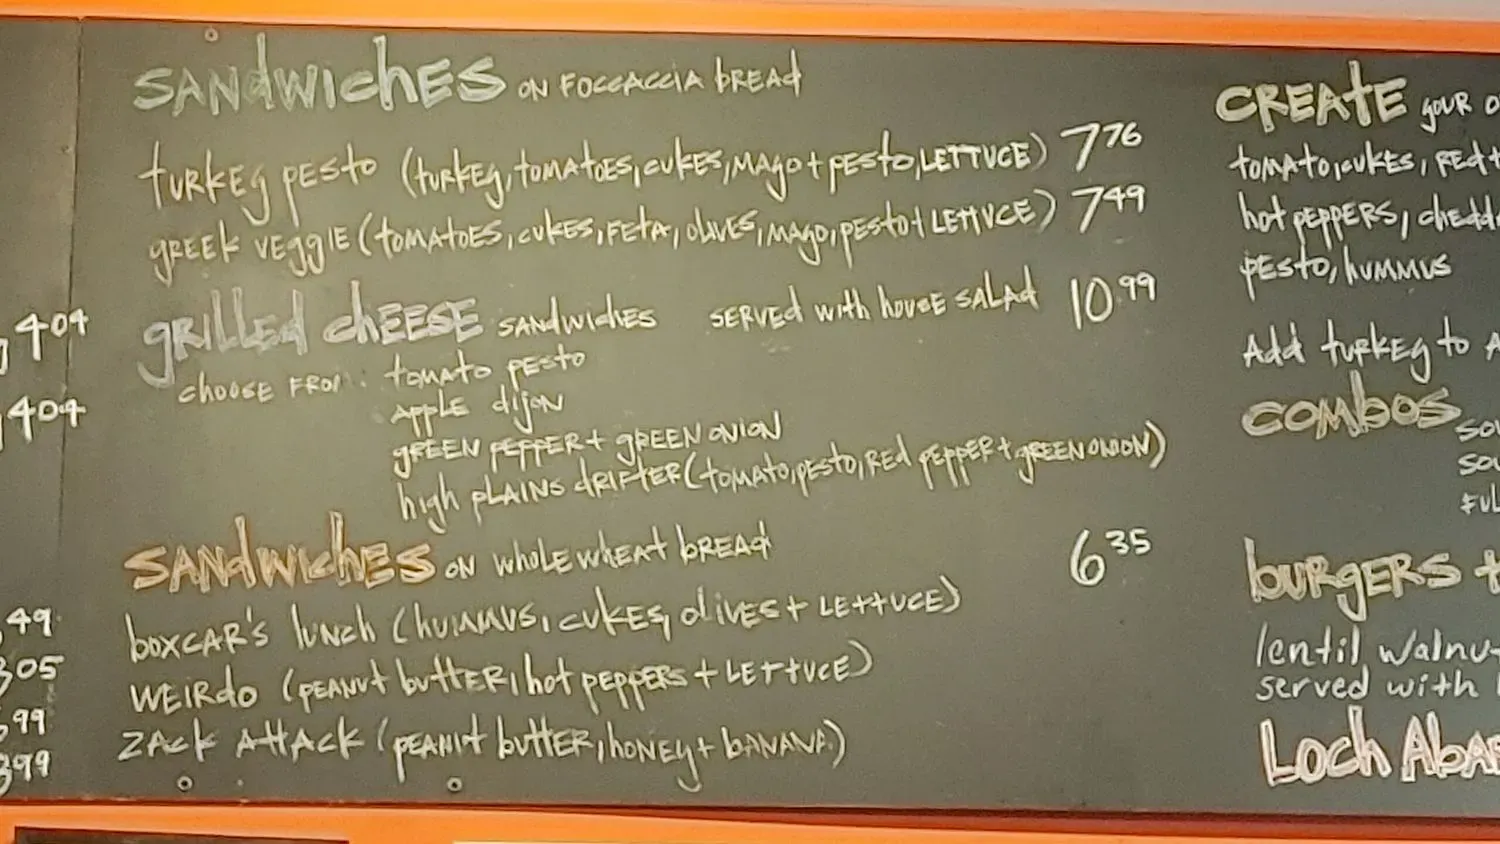 SANDWICHES ON FOCCACCIA BREAD
turkey pesto (turkey, tomatoes, cukes, mayo + pesto, LETTUCE) 7 76
GREEK VEGGIE (tomatoes, cukes, feta, olives, mayo, pesto + LETTUCE) 7 49
GRILLED CHEESE SANDWICHES SERVED with house SALAD 10 99
choose FROM: tomato pesto
APPLE dijon
GREEN PEPPER + GREEN ONION
high PLAINS DRIFTER (tomato, pesto, RED PEPPER + GREEN ONION)
SANDWICHES ON WHOLE WHEAT BREAD 6 35
BOXCAR'S lunch (hummus, cukes, olives + LETTUCE)
WEIRDO (PEANUT BUTTER, hot PEPPERS + LETTUCE)
ZACK ATTACK (PEANUT BUTTER, HONEY + BANANA)
4 04
4 04
49
05
99
99
CREATE YOUR
tomato, cukes, RED
hot PEPPERS,
PESTO, HUMMUS
Add turkey to
COMBOS
BURGERS +
lentil walnut
served with
Loch